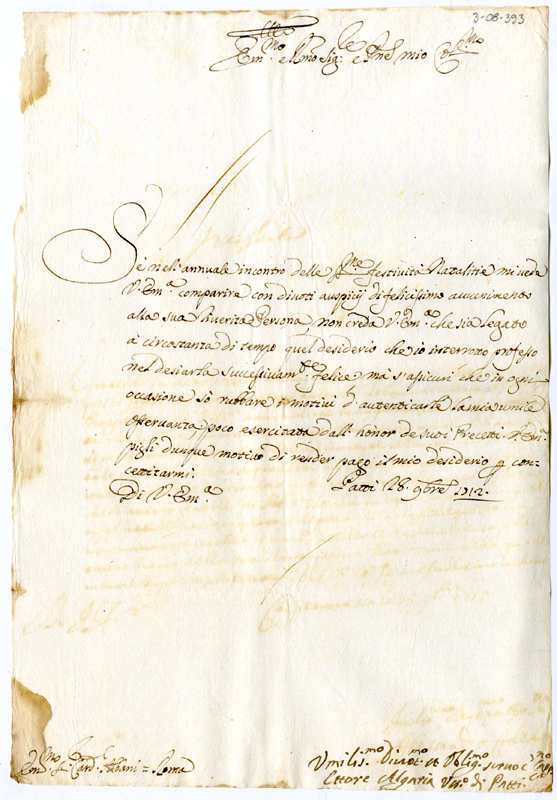 3-08-393
Em.mo e Rmo Sig.re e Pne mio Col.mo
Se nell'annuale incontro delle S.me festività Natalitie mi veda
V. Em.a comparire con divoti auspicij di felicissimo avvenimento
alla sua riverita Persona, non creda V. Em.a che sia legato
à circostanza di tempo quel desiderio che io interrotto professo
nel desiarla successivam.te felice, mà s'assicuri che in ogni
occasione sò rubbare i motivi d'autenticarle la mia umile
osservanza, poco esercitata dall'honor de suoi Precetti. V. Em.a
pigli dunque motivo di render pago il mio desiderio con
cettitarmi.
Di V. Em.a Patti 28. 9bre 1712.
Em.mo S.r Card. Albani = Roma
Umiliss.mo Divot.mo et Oblig.mo servo
Ettore Algaria V.vo di Patti